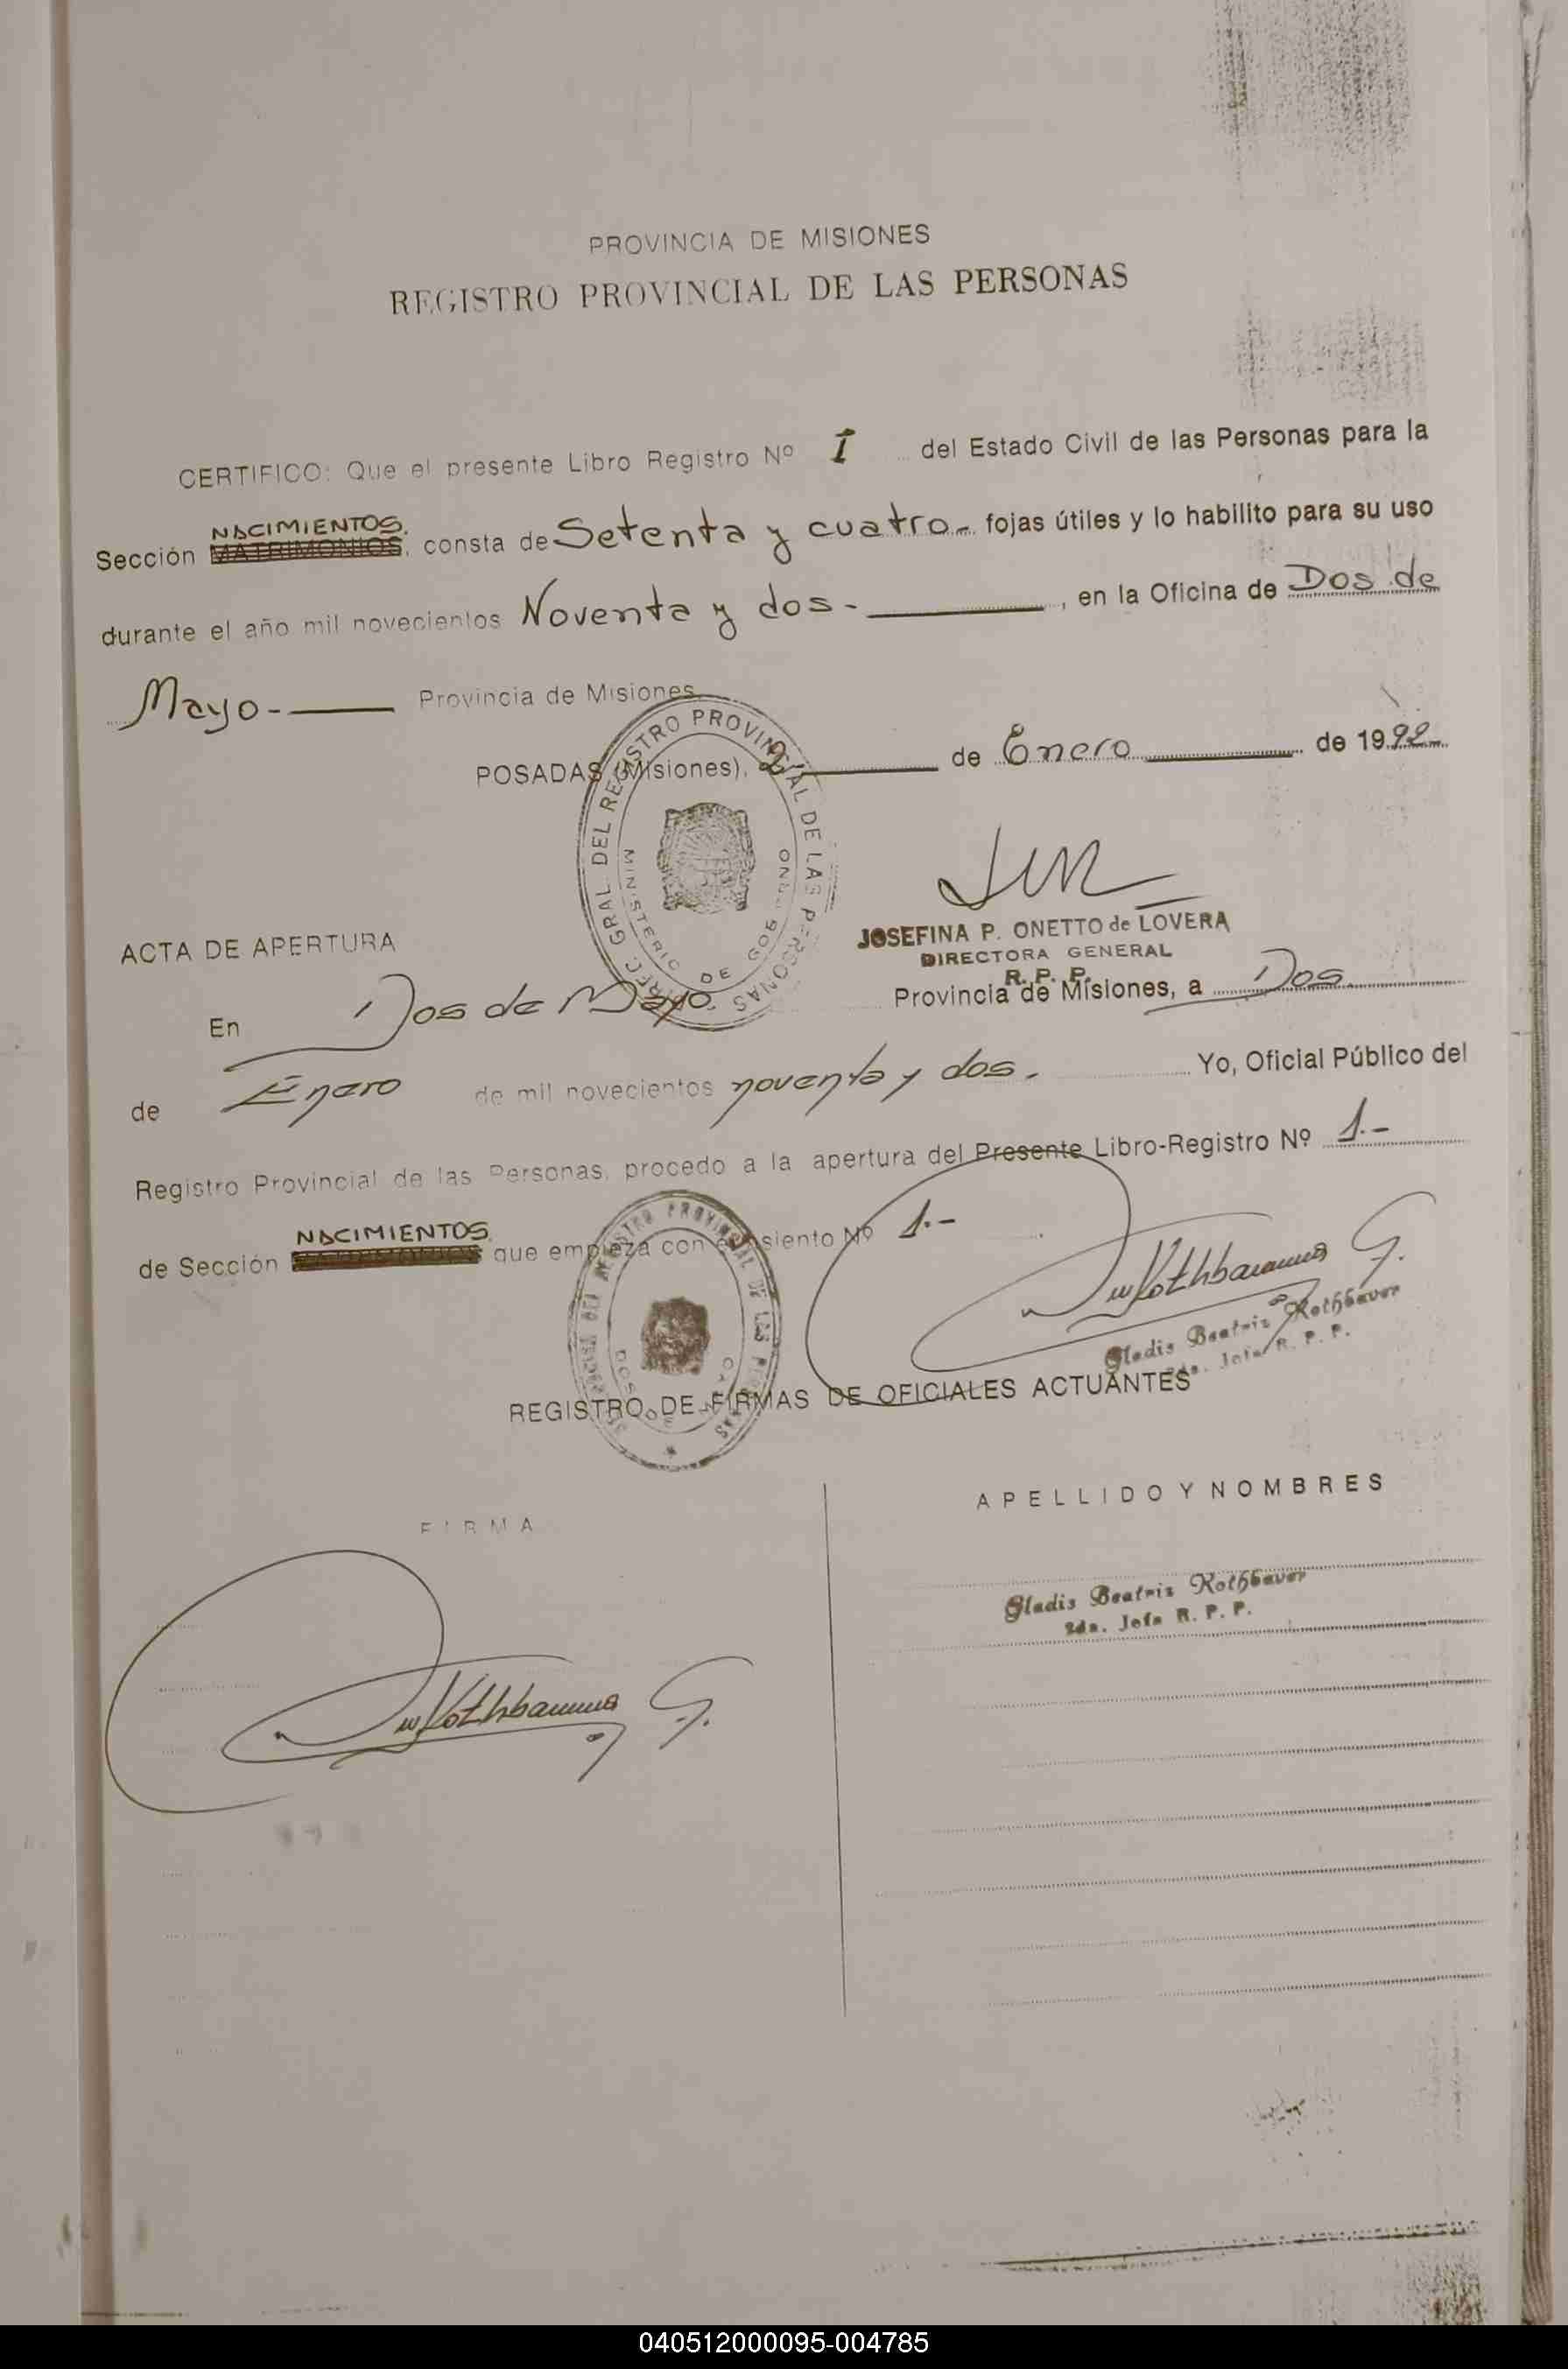 PROVINCIA DE MISIONES
REGISTRO PROVINCIAL DE LAS PERSONAS
CERTIFICO: Que el presente Libro Registro Nº I del Estado Civil de las Personas para la
NACIMIENTOS
Sección MATRIMONIOS, consta de Setenta y cuatro.- fojas útiles y lo habilito para su uso
durante el año mil novecientos Noventa y dos.-, en la Oficina de Dos de
Mayo.- Provincia de Misiones.
POSADAS (Misiones), 2 de Enero de 1992
JOSEFINA P. ONETTO de LOVERA
DIRECTORA GENERAL
R. P. P.
ACTA DE APERTURA
En Dos de Mayo. Provincia de Misiones, a Dos.
de Enero de mil novecientos noventa y dos. Yo, Oficial Público del
Registro Provincial de las Personas, procedo a la apertura del Presente Libro-Registro Nº 1.-
NACIMIENTOS
de Sección MATRIMONIOS que empieza con el Asiento Nº 1.-
Gladis Beatriz Rothbauer
2da. Jefa R. P. P.
REGISTRO DE FIRMAS DE OFICIALES ACTUANTES
FIRMA
APELLIDO Y NOMBRES
Gladis Beatriz Rothbauer
2da. Jefa R. P. P.
040512000095-004785